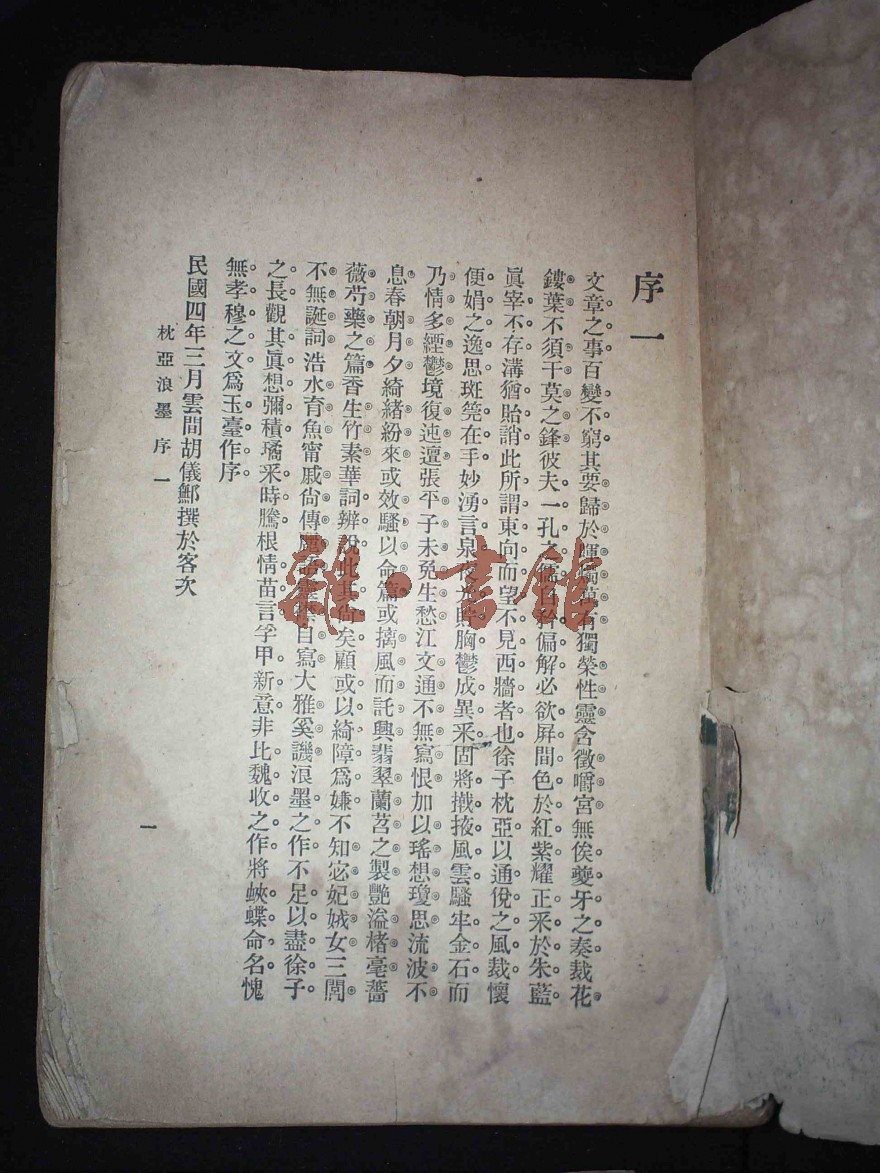 序一
文章之事百變不窮其要歸於 有獨榮性靈含徵嚼宮無俟夔牙之奏裁花
鏤葉不須干莫之鋒彼夫一孔之儒 偏解必欲屏間色於紅紫耀正采於朱藍
眞宰不存溝猶貽誚此所謂東向而望不見西牆者也徐子枕亞以通侻之風裁懷
便娟之逸思斑筦在手妙湧言泉 胸鬱成異采固將擻掖風雲騷牢金石而
乃情多緸鬱境復迍邅張平子未免生愁江文通不無寫恨加以瑤想瓊思流波不
息春朝月夕綺緒紛來或效騷以命篇或摛風而託興翡翠蘭苕之製艷溢楮毫薔
薇芍藥之篇香生竹素華詞辨說此其尙矣顧或以綺障爲嫌不知宓妃娀女三閭
不無誕詞浩水育魚甯戚尙傳 自寫大雅奚譏浪墨之作不足以盡徐子
之長觀其眞想彌積璚采時騰根情苗言孚甲新意非比魏收之作將蛺蝶命名愧
無孝穆之文爲玉臺作序
民國四年三月雲間胡儀鄦撰於客次
枕亞浪墨 序一
一
雜·書館